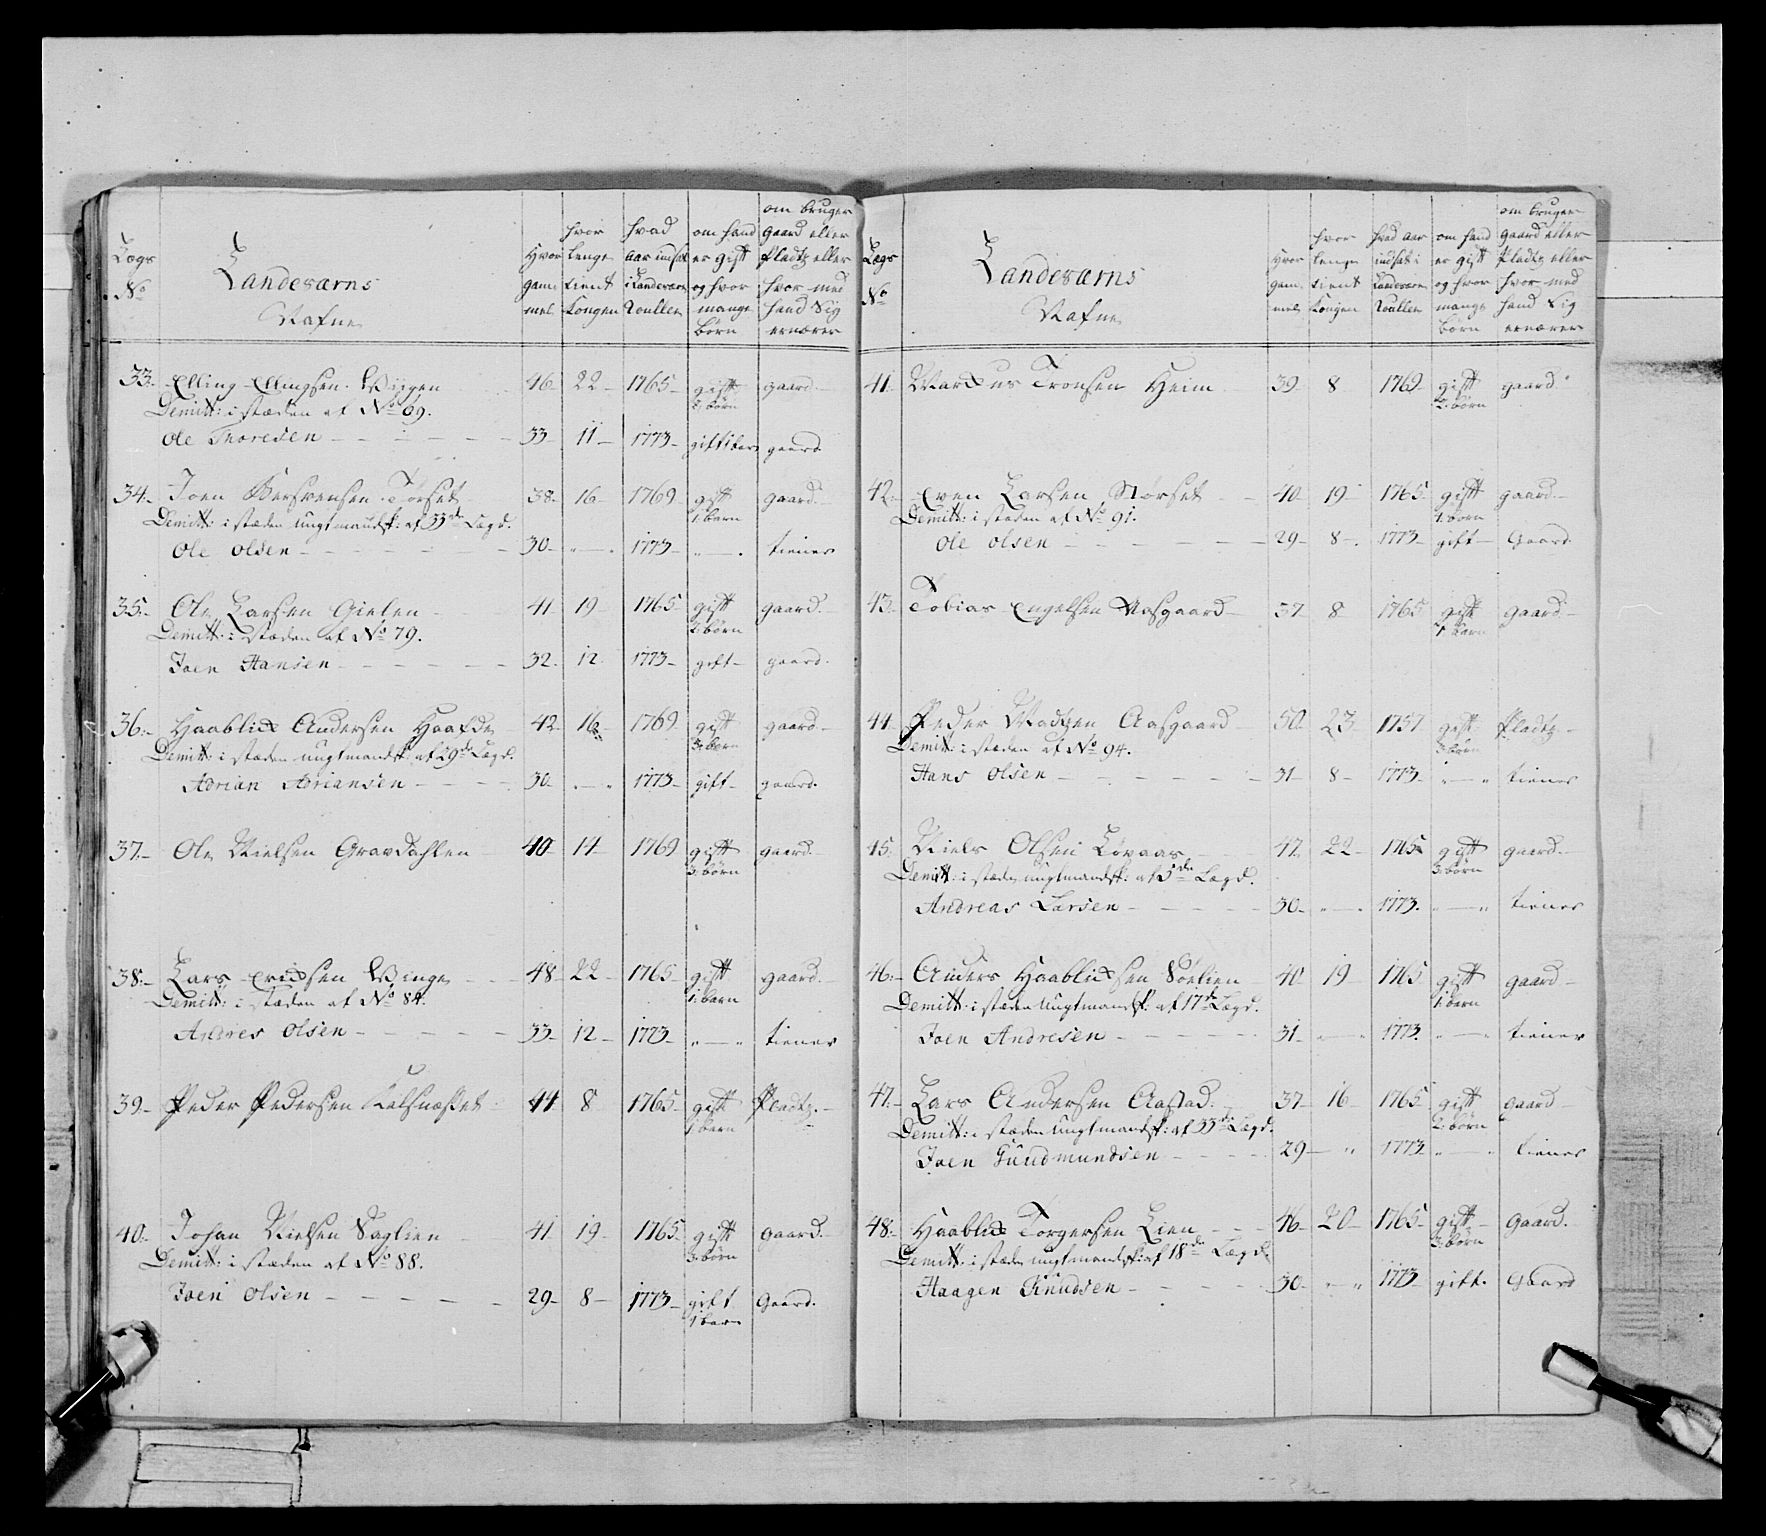 Lægs No
Landeværns Nafne
Hvor gammel
hvor lenge tient Kongen
hvad aar indsat i Landeværns Roullen
om hand er gift og hvor mange børn
om bruger gaard eller Pladtz eller hvor med hand Sig ernærer
33. Elling Ellingsen 46 22 1765 gift 2 børn gaard
Demitt: i stæden af No 69.
Ole Thoresen 33 11 1773 gift 1 barn gaard
34. Joen Torset 38 16 1769 gift 1 barn gaard
Demitt: i stæden ungtmandsk: af 33de Lægd.
Ole Olsen 30 " 1773 " tiener
35. Ole Larsen Gielen 41 19 1765 gift 2 børn gaard
Demitt: i stæden af No 79.
Joen Hansen 32 12 1773 gift gaard
36. Haablick Andersen 42 16 1769 gift 3 børn gaard
Demitt: i stæden ungtmandsk: af 29de Lægd.
Adrian Adriansen 30 " 1773 gift gaard
37. Ole Nielsen Gravdahlen 40 14 1769 gift 3 børn gaard
38. Lars Ericksen Winge 48 22 1765 gift 1 barn gaard
Demitt: i stæden af No 84.
Andres Olsen 33 12 1773 " tiener
39. Peder Pedersen Kalsnæsset 44 8 1765 gift 1 barn Pladtz
40. Johan Nielsen Saglien 41 19 1765 gift 3 børn gaard
Demitt: i stæden af No 88.
Joen Olsen 29 8 1773 gift 1 barn Gaard
Lægs No
Landeværns Nafne
Hvor gammel
hvor lenge tient Kongen
hvad aar indsat i Landeværns Roullen
om hand er gift og hvor mange børn
om bruger gaard eller Pladtz eller hvor med hand Sig ernærer
41. Marcus Tronsen Heim 39 8 1769 gift 2 børn gaard
42. Even Larsen Størset 40 19 1765 gift gaard
Demitt: i stæden af No 91.
Ole Olsen 29 8 1773 gift Gaard
43. Tobias Engelsen Aasgaard 37 8 1765 gift 1 barn gaard
44. Peder Madtzen Aasgaard 50 23 1757 gift Pladtz
Demitt: i stæden af No 94.
Hans Olsen 31 8 1773 " tiener
45. Niels Olsen Løvaas 47 22 1765 gift 3 børn gaard
Demitt: i stæden ungtmandsk: af 5de Lægd.
Andreas Larsen 30 " 1773 " tiener
46. Anders Haablicksen Søelien 40 19 1765 gift 1 barn gaard
Demitt: i stæden ungtmandsk: af 17de Lægd.
Joen Andresen 31 " 1773 " tiener
47. Lars Andersen Aastad 37 16 1765 gift 2 børn gaard
Demitt: i stæden ungtmandsk: af 33de Lægd.
Joen Gundmundsen 29 " 1773 " tiener
48. Haablick Torgersen Lien 46 20 1765 gift 3 børn Gaard
Demitt: i stæden ungtmandsk: af 18de Lægd
Haagen Knudsen 30 " 1773 gift Gaard